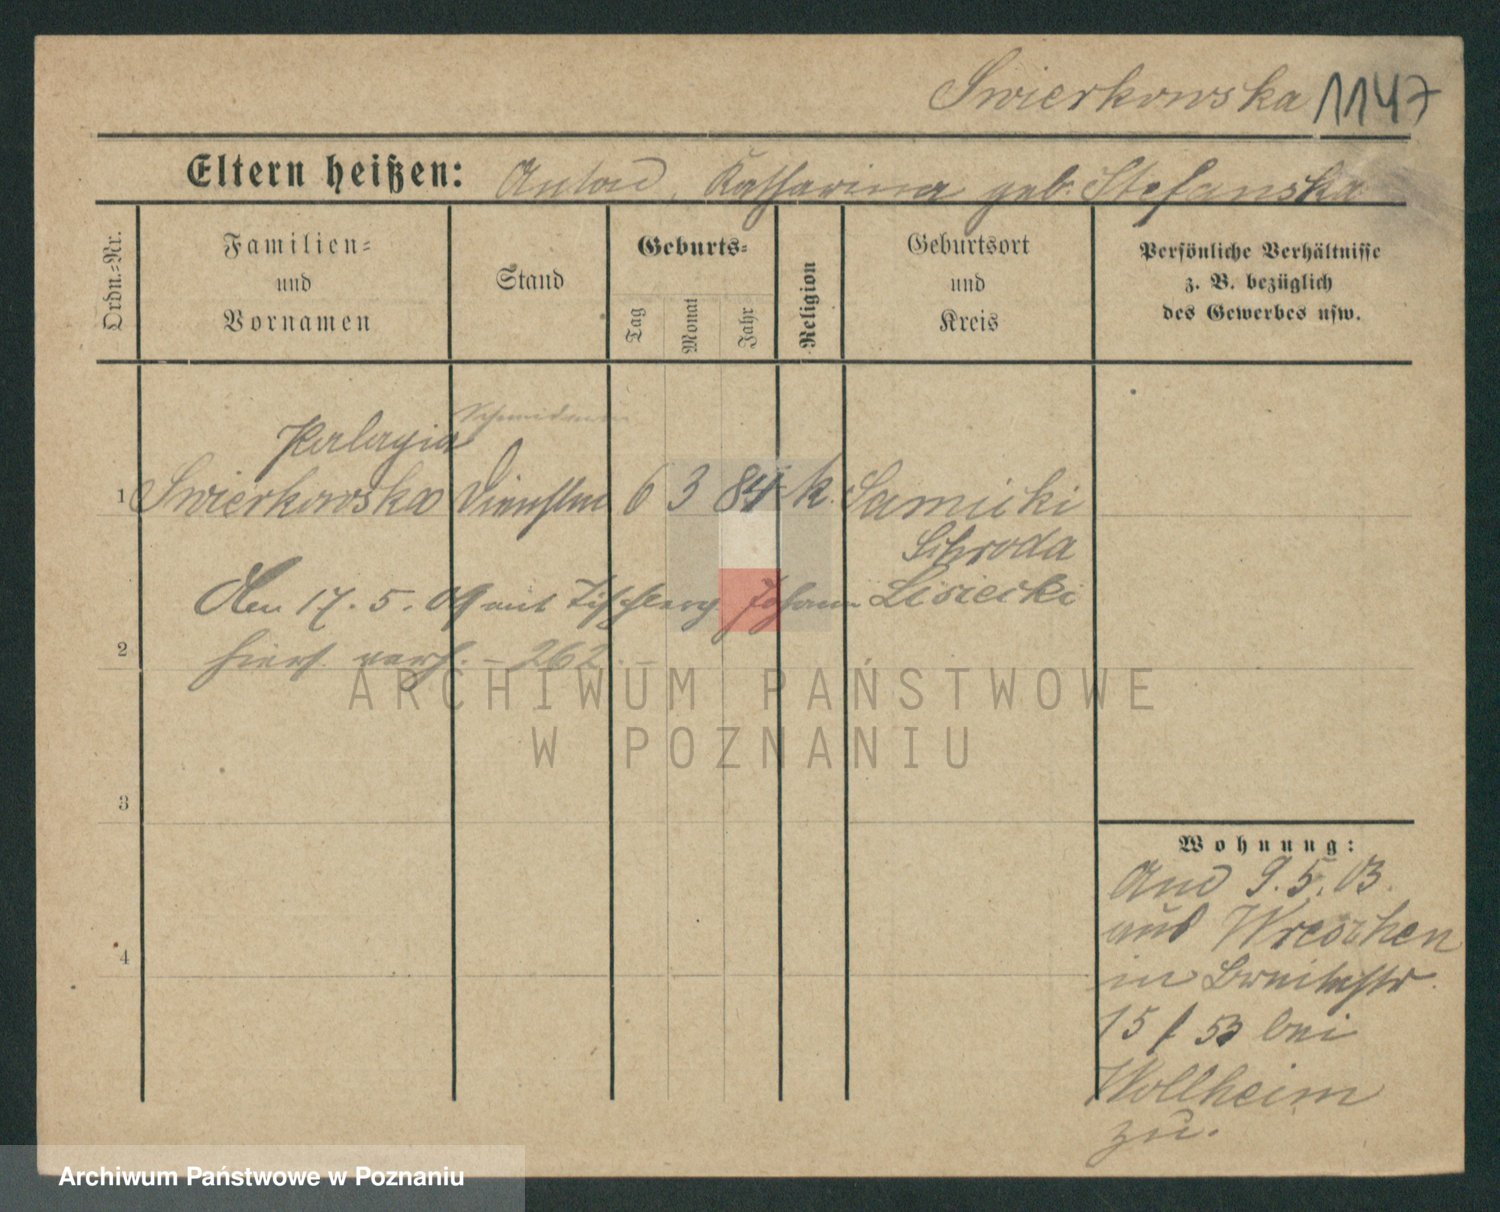 Swierkowska 1147
Eltern heißen: Anton, Katharina geb. Stefanska
Ordn.-Nr.
Familien-
und
Vornamen
Stand
Geburts-
Tag
Monat
Jahr
Religion
Geburtsort
und
Kreis
Persönliche Verhältnisse
z. B. bezüglich
des Gewerbes usw.
Pelagia
1 Swierkowska 6 3 84 k. Sarnicki
Schroda
Den 17.5.09 mit Johann Lisiecki
2 hiers. verh. - 262. -
ARCHIWUM PAŃSTWOWE
W POZNANIU
3
4
Wohnung:
And 9.5.03.
aus Wreschen
in Breitestr.
15 / 53 bei
Wollheim
zu.
Archiwum Państwowe w Poznaniu